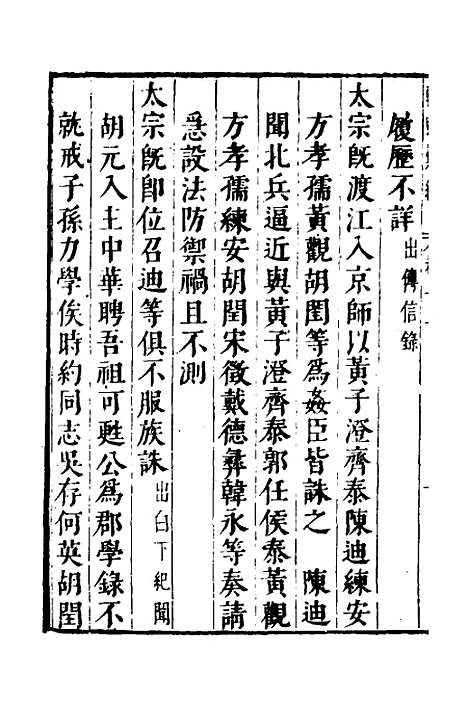 履歷不詳 出傳信錄
太宗既渡江入京師以黃子澄齊泰陳迪練安
方孝孺黃觀胡閏等爲姦臣皆誅之 陳迪
聞北兵逼近與黃子澄齊泰郭任侯泰黃觀
方孝孺練安胡閏宋徵戴德彝韓永等奏請
急設法防禦禍且不測
太宗既即位召迪等俱不服族誅 出白下紀聞
胡元入主中華聘吾祖可甦公爲郡學錄不
就戒子孫力學俟時約同志吳存何英胡閏